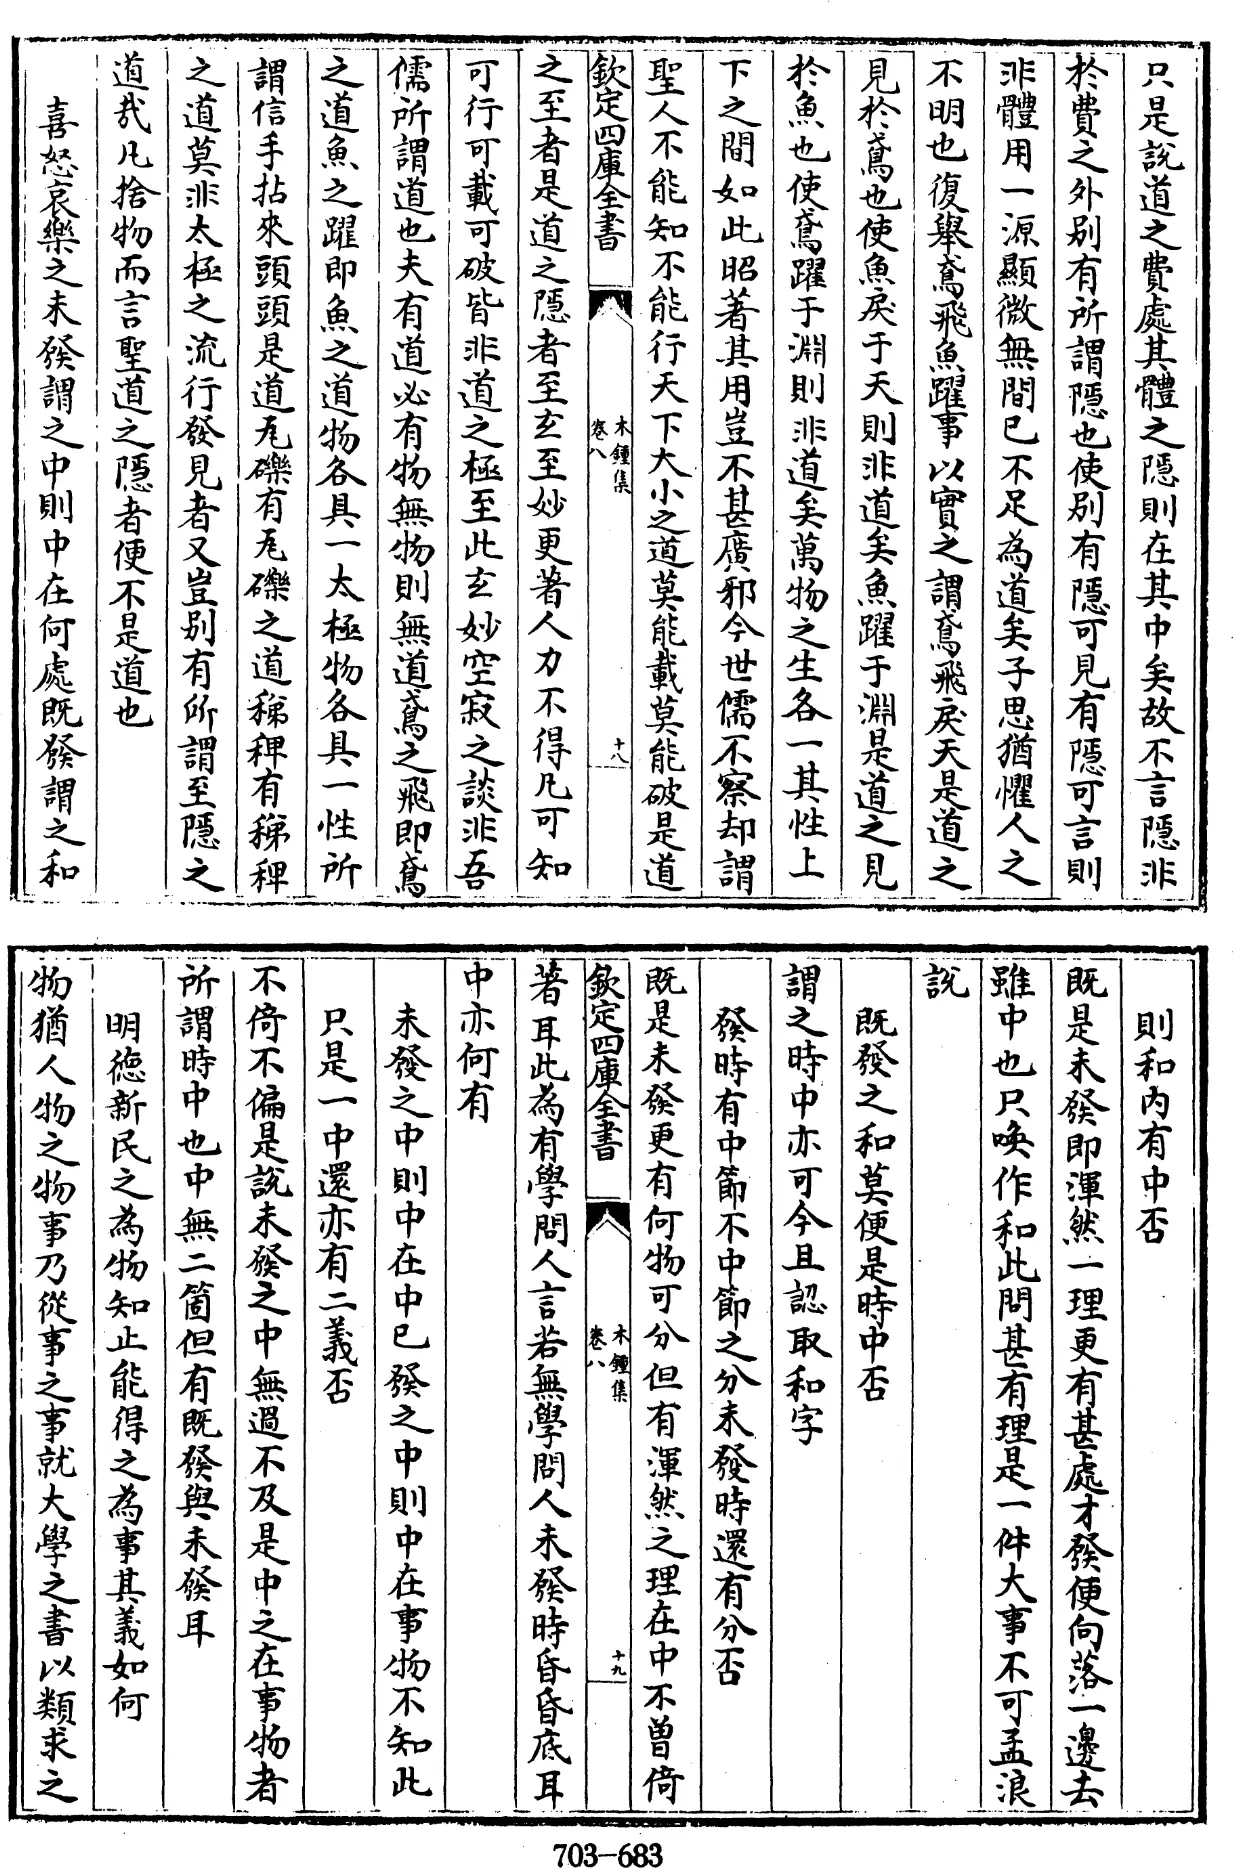 只是說道之費處其體之隱則在其中矣故不言隱非
於費之外别有所謂隱也使别有隱可見有隱可言則
非體用一源顯微無間已不足為道矣子思猶懼人之
不明也復舉鳶飛魚躍事以實之謂鳶飛戾天是道之
見於鳶也使魚戾于天則非道矣魚躍于淵是道之見
於魚也使鳶躍于淵則非道矣萬物之生各一其性上
下之間如此昭著其用豈不甚廣邪今世儒不察却謂
聖人不能知不能行天下大小之道莫能載莫能破是道
欽定四庫全書
木鍾集
卷八
十八
之至者是道之隱者至玄至妙更著人力不得凡可知
可行可載可破皆非道之極至此玄妙空寂之談非吾
儒所謂道也夫有道必有物無物則無道鳶之飛即鳶
之道魚之躍即魚之道物各具一太極物各具一性所
謂信手拈來頭頭是道瓦礫有瓦礫之道稊稗有稊稗
之道莫非太極之流行發見者又豈别有所謂至隱之
道哉凡捨物而言聖道之隱者便不是道也
喜怒哀樂之未發謂之中則中在何處既發謂之和
則和内有中否
既是未發即渾然一理更有甚處才發便向落一邊去
雖中也只喚作和此問甚有理是一件大事不可孟浪
說
既發之和莫便是時中否
謂之時中亦可今且認取和字
發時有中節不中節之分未發時還有分否
既是未發更有何物可分但有渾然之理在中不曾倚
欽定四庫全書
木鍾集
卷八
十九
著耳此為有學問人言若無學問人未發時昏昏底耳
中亦何有
未發之中則中在中已發之中則中在事物不知此
只是一中還亦有二義否
不倚不偏是說未發之中無過不及是中之在事物者
所謂時中也中無二箇但有既發與未發耳
明德新民之為物知止能得之為事其義如何
物猶人物之物事乃從事之事就大學之書以類求之
703-683